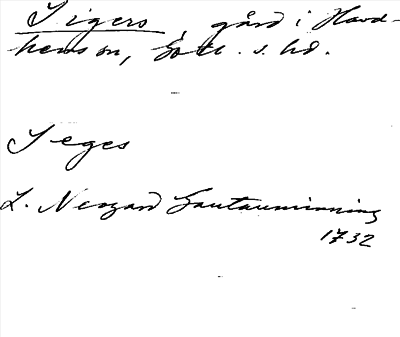 Sigers, gård i Havd-
hem sn, Gotl. s. hd.
Seges
L. Neogard Gautauminning
1732